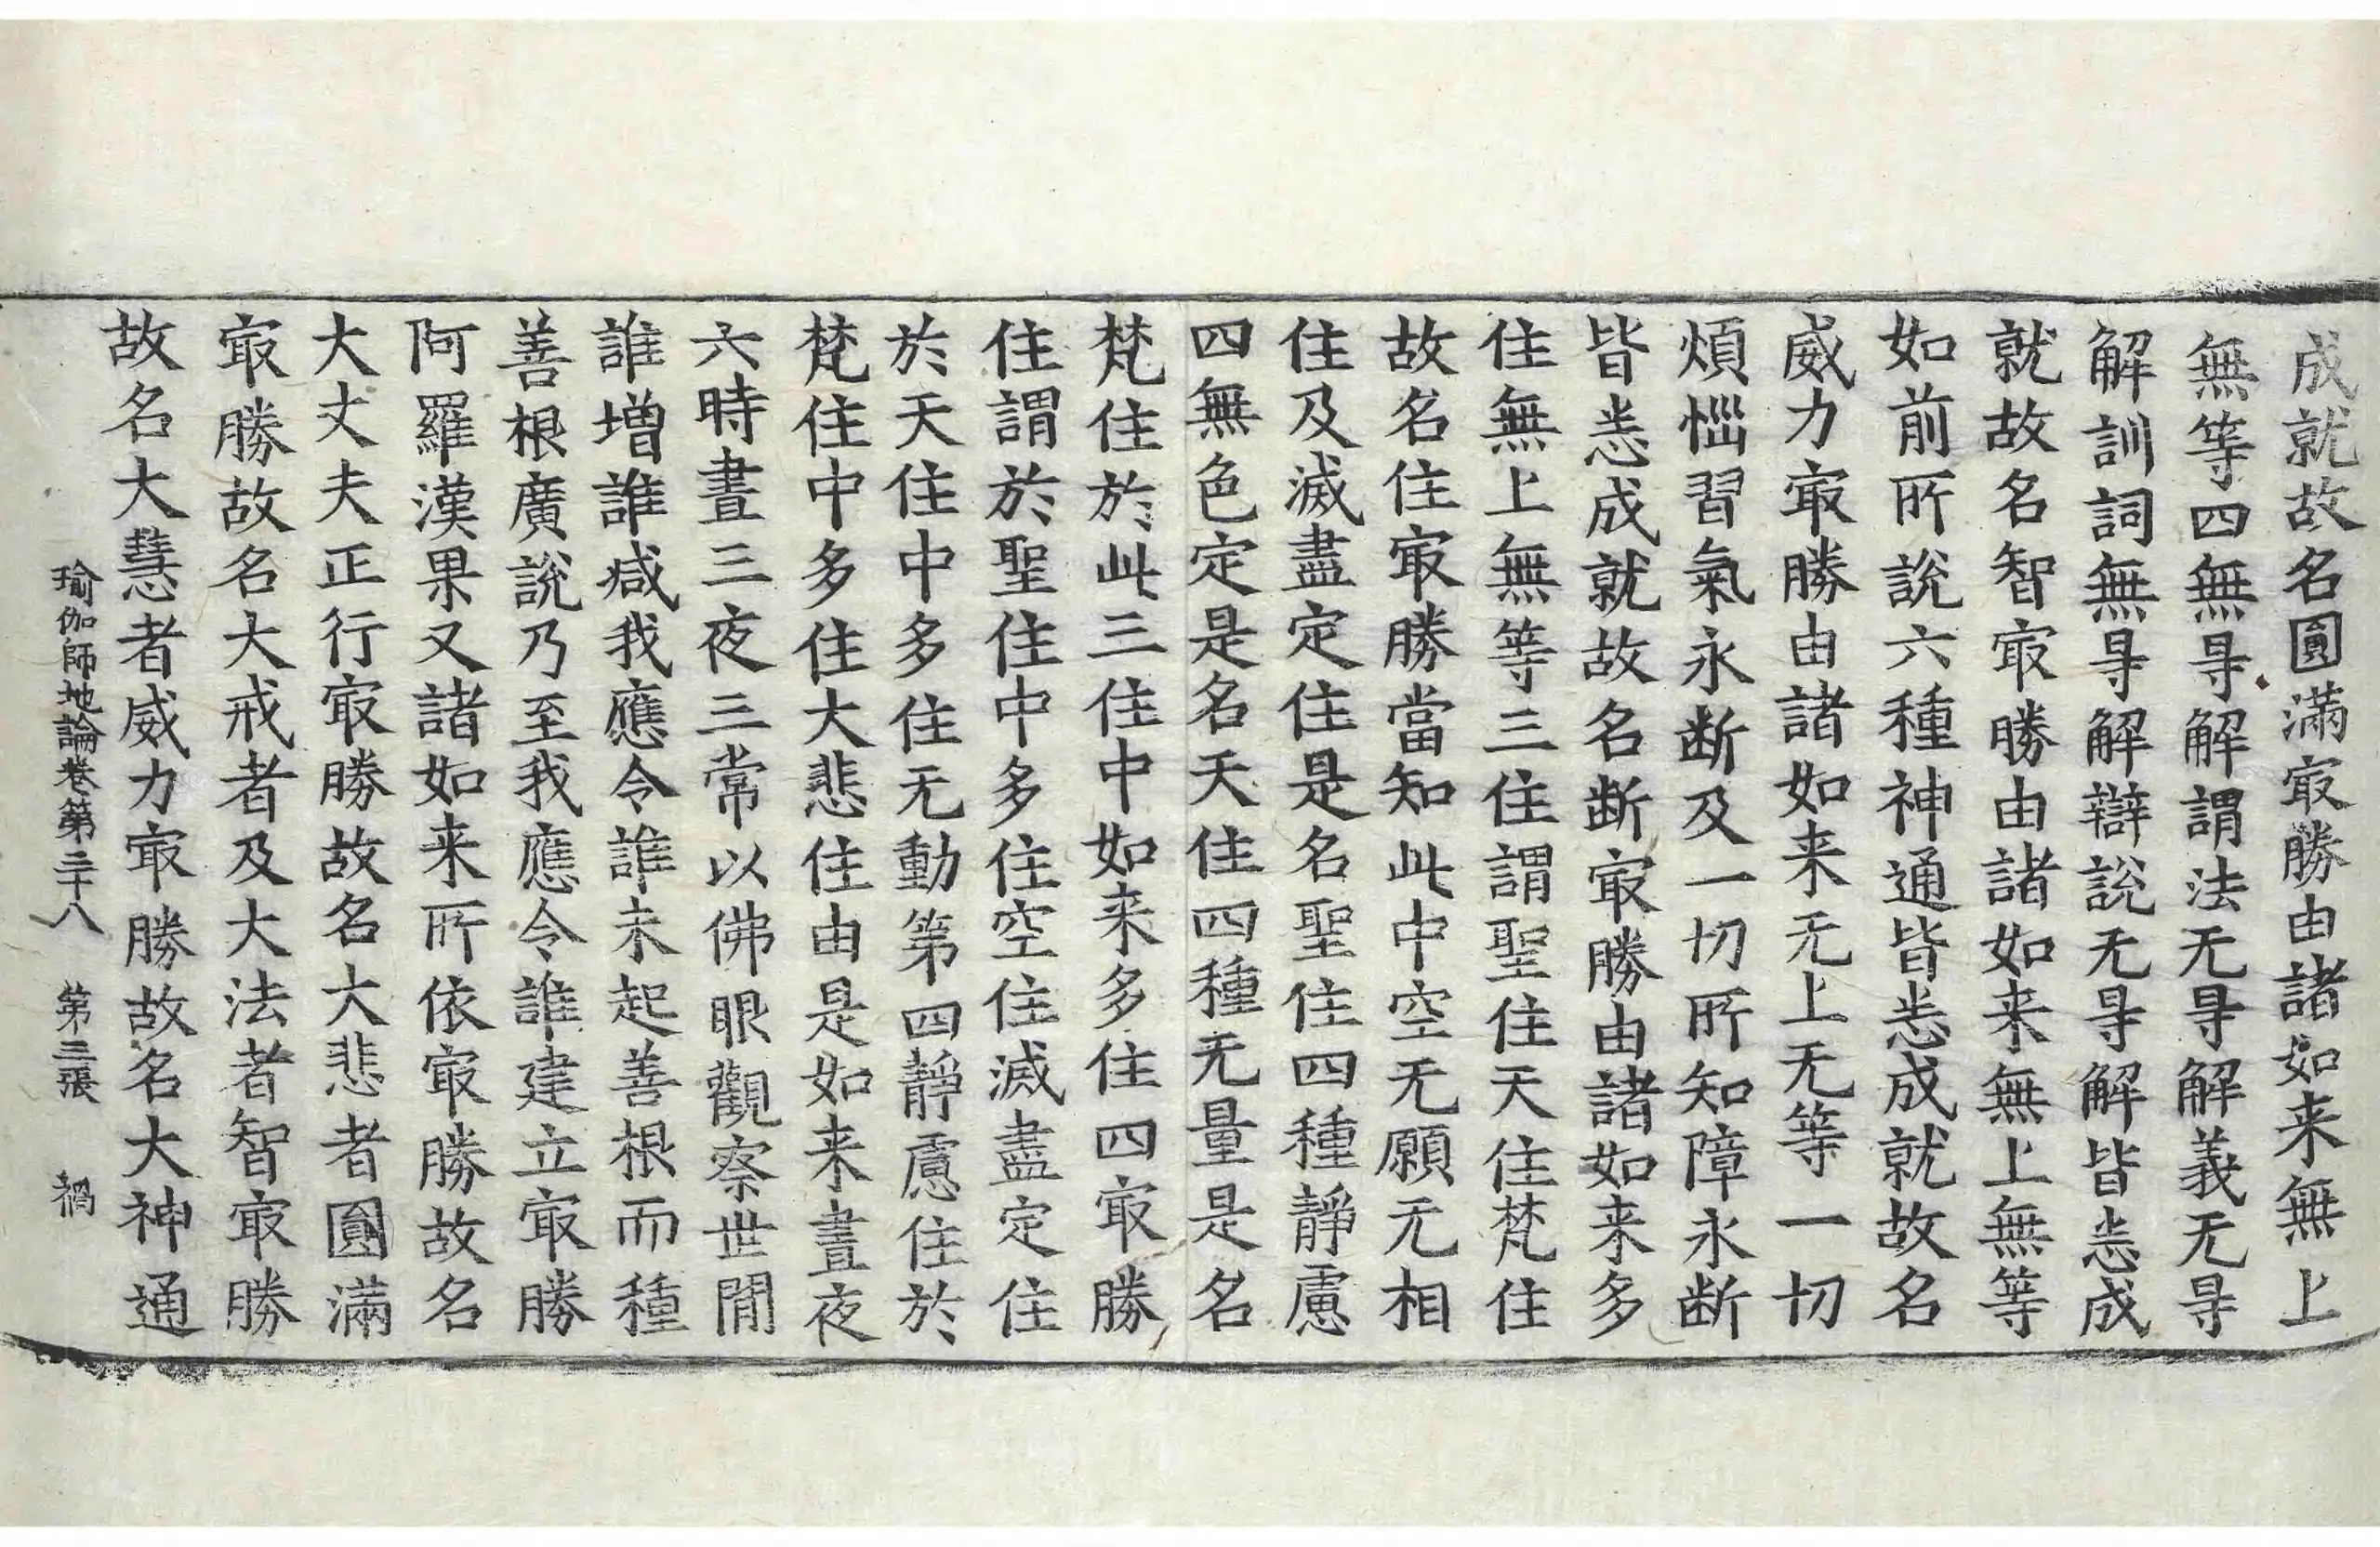 成就故名圓滿㝡勝由諸如来無上
無等四無㝵解謂法无㝵解義无㝵
解訓詞無㝵解辯說无㝵解皆悉成
就故名智㝡勝由諸如来無上無等
如前所說六種神通皆悉成就故名
威力㝡勝由諸如来无上无等一切
煩惱習氣永断及一切所知障永断
皆悉成就故名断㝡勝由諸如来多
住無上無等三住謂聖住天住梵住
故名住㝡勝當知此中空无願无相
住及滅盡定住是名聖住四種靜慮
四無色定是名天住四種无量是名
梵住於此三住中如来多住四㝡勝
住謂於聖住中多住空住滅盡定住
於天住中多住无動第四靜慮住於
梵住中多住大悲住由是如来晝夜
六時晝三夜三常以佛眼觀察世閒
誰增誰减我應令誰未起善根而種
善根廣說乃至我應令誰建立㝡勝
阿羅漢果又諸如来所依㝡勝故名
大丈夫正行㝡勝故名大悲者圓滿
㝡勝故名大戒者及大法者智㝡勝
故名大慧者威力㝡勝故名大神通
瑜伽師地論卷第三十八 第三張 禍